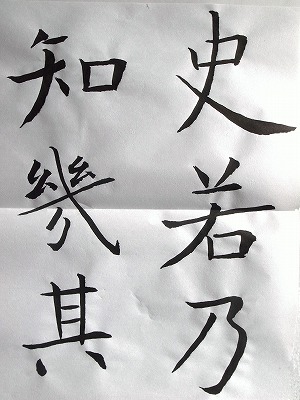 史若乃
知幾其